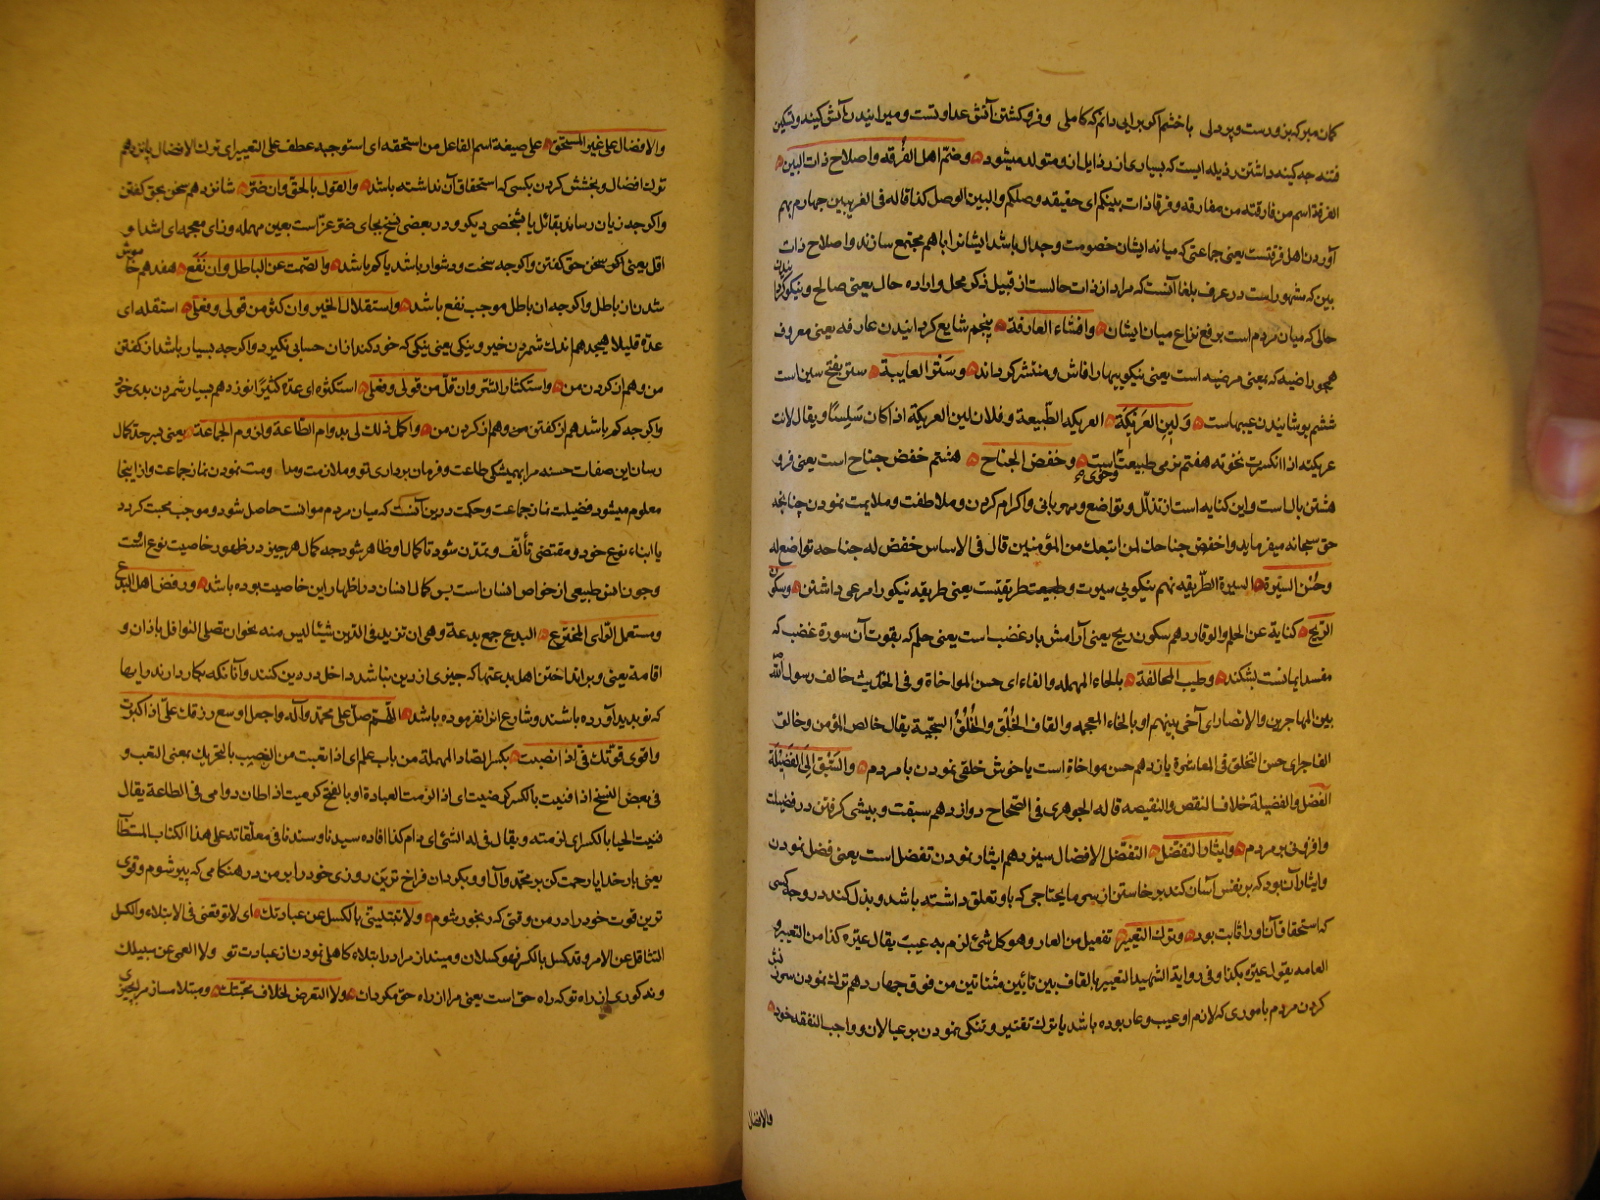 کمان مبر که بزورست و پردلی با خشم اکر برایی دانم که کاملی و فرو کشتن آتش عداوتست و میرانیدن آتش کینه و تسکین
فتنه چه کینه داشتن رذیله ایست که بسیاری از رذایل از و متولد میشود وضم اهل الفرقه واصلاح ذات البین
الفرقة اسم من فارقته من مفارقه و فرقا ذات بینکم ای حقیقه وصلکم والبین الوصل کذا قاله فی الغریبین چهارم بهم
آوردن اهل فرقتست یعنی جماعتی که میانه ایشان خصومت و جدال باشد ایشانرا با هم مجتمع سازند و اصلاح ذات
بین که مشهور است در عرف بلغا آنست که مراد از ذات حالست از قبیل ذکر محل و اراده حال یعنی صالح و نیکو کردا نیدن
حالی که میان مردم است برفع نزاع میان ایشان وافشاء العارفة پنجم شایع کردانیدن عارفه یعنی معروف
همچو راضیه که بمعنی مرضیه است یعنی نیکوییها را فاش و منتشر کرداند وستر العایبة ستر بفتح سین است
ششم پوشانیدن عیبهاست ولین العریکة العریکه الطبیعة و فلان لین العریکة اذا کان سلسا و یقال لانت
عریکته اذا انکسرت نخوته هفتم نرمی طبیعت و خوی است وخفض الجناح هشتم خفض جناح است یعنی فرو
هشتن بالست و این کنایه است از تذلل و تواضع و مهربانی و اکرام کردن و ملاطفت و ملایمت نمودن چنانچه
حق سبحانه میفرماید واخفض جناحک لمن اتبعک من المؤمنین قال فی الاساس خفض له جناحه تواضع له
وحسن السیرة السیرة الطریقه نهم نیکویی سیرت و طبیعت طریقتست یعنی طریقه نیکو را مرعی داشتن وسکون
الریح کنایة عن الحلم والوقار دهم سکون ریح یعنی آرامش باد غضب است یعنی حلم که بقوت آن سورة غضب که
مفسد ایمانست بشکند وطیب المخالفة بالحاء المهمله والفاء ای حسن المواخاة و فی الحدیث حالف رسول الله
بین المهاجرین والانصار ای آخی بینهم او بالخاء المعجمه والقاف الخلق والخلق السجیة یقال خالص المؤمن وخالق
الفاجر ای حسن التخلق فی المعاشرة یازدهم حسن مواخاة است یا خوش خلقی نمودن با مردم والسبق الی الفضیلة
الفضل والفضیلة خلاف النقص والنقیصه قاله الجوهری فی الصحاح دوازدهم سبقت و پیشی کرفتن در فضیلت
وافزونی بر مردم وایثار التفضل التفضل الافضال سیزدهم ایثار نمودن تفضل است یعنی فضل نمودن
وایثار آن بود که بر نفس آسان کند برخاستن از سر ما یحتاجی که باو تعلق داشته باشد و بذل کند در وجه کسی
که استحقاق آن او را ثابت بود وترک التعییر تفعیل من العار وهو کل شئ لزم به عیب یقال عیره کذا من التعییر و
العامه یقول عیره بکذا و فی روایة الشهید التقتیر بالقاف بین تائین مثناتین من فوق چهاردهم ترک نمودن سرزنش
کردن مردم باموری که لازم او عیب و عار بوده باشد یا ترک تقتیر و تنکی نمودن بر عیالان و واجب النفقه خود
والافضال
والافضال علی غیر المستحق علی صیغة اسم الفاعل من استحقه ای استوجبه عطف علی التعییر ای ترک الافضال پانزدهم
ترک افضال و بخشش کردن بکسی که استحقاق آن نداشته باشد والقول بالحق وان ضر شانزدهم سخن بحق کفتن
واکر چه زیان رساند بقائل یا بشخصی دیکر و در بعضی نسخ بجای ضر عز است بعین مهمله و زای معجمه ای اشد او
اقل یعنی اکر سخن حق کفتن و اکر چه سخت و دشوار باشد یا کم باشد والصمت عن الباطل وان نفع هفدهم خاموش
شدن از باطل و اکر چه ان باطل موجب نفع باشد واستقلال الخیر وان کثر من قولی وفعلی استقله ای
عده قلیلا هیجدهم اندک شمردن خیر و نیکی یعنی نیکی که خود کند از ان حسابی نکیرد و اکر چه بسیار باشد از کفتن
من و هم از کردن من واستکثار الشر وان قل من قولی وفعلی استکثره ای عده کثیرا نوزدهم بسیار شمردن بدی خود
واکر چه کم باشد هم از کفتن من و هم از کردن من واکمل ذلک لی بدوام الطاعة ولزوم الجماعة یعنی بدرجه کمال
رسان این صفات حسنه مرا بهمیشکی طاعت و فرمان برداری تو و ملازمت ومداومت نمودن نماز جماعت و از اینجا
معلوم میشود فضیلت نماز جماعت و حکمت درین آنست که میان مردم موانست حاصل شود و موجب محبت کردد
با ابناء نوع خود و مقتضی تألف و تمدن شود تا کمال او ظاهر شود چه کمال هر چیز در ظهور خاصیت نوع اوست
وچون انس طبیعی از خواص انسان است پس کمال انسان در اظهار این خاصیت بوده باشد ورفض اهل البدع
ومستعمل الرای المخترع البدع جمع بدعة وهی ان تزید فی الدین شیئا لیس منه نحو ان تصلی النوافل باذان و
اقامة یعنی و برانداختن اهل بدعتها که چیزی از دین نباشد داخل در دین کنند و آنانکه بکار دارند رایها
که نو پدید آورده باشند و شارع انرا نفرموده باشد اللهم صل علی محمد وآله واجعل اوسع رزقک علی اذا کبرت
واقوی قوتک فی اذا نصبت بکسر الصاد المهملة من باب علم ای اذا تعبت من النصب بالتحریک بمعنی التعب و
فی بعض النسخ اذا قنیت بالکسر کرضیت ای اذا لزمت العبادة او بالفتح کرمیت اذا طال دوامی فی الطاعة یقال
قنیت الحیا بالکسر ای لزمته و یقال قنی له الشئ ای دام کذا افاده سیدنا و سندنا فی معلقاته علی هذا الکتاب المستطاب
یعنی بار خدایا رحمت کن بر محمد و آل او و بکردان فراخ ترین روزی خود را بر من در هنکامی که پیر شوم و قوی
ترین قوت خود را در من وقتی که رنجور شوم ولا تبتلینی بالکسل عن عبادتک ای لا توقعنی فی الابتلاء والکسل
التثاقل عن الامر وقد کسل بالکسر فهو کسلان و مینداز مرا در ابتلاء کاهلی نمودن از عبادت تو ولا العمی عن سبیلک
و نه کوری از راه تو که راه حق است یعنی مرا از راه حق مکردان ولا التعرض لخلاف محبتک و مبتلا مساز مرا بچیزی